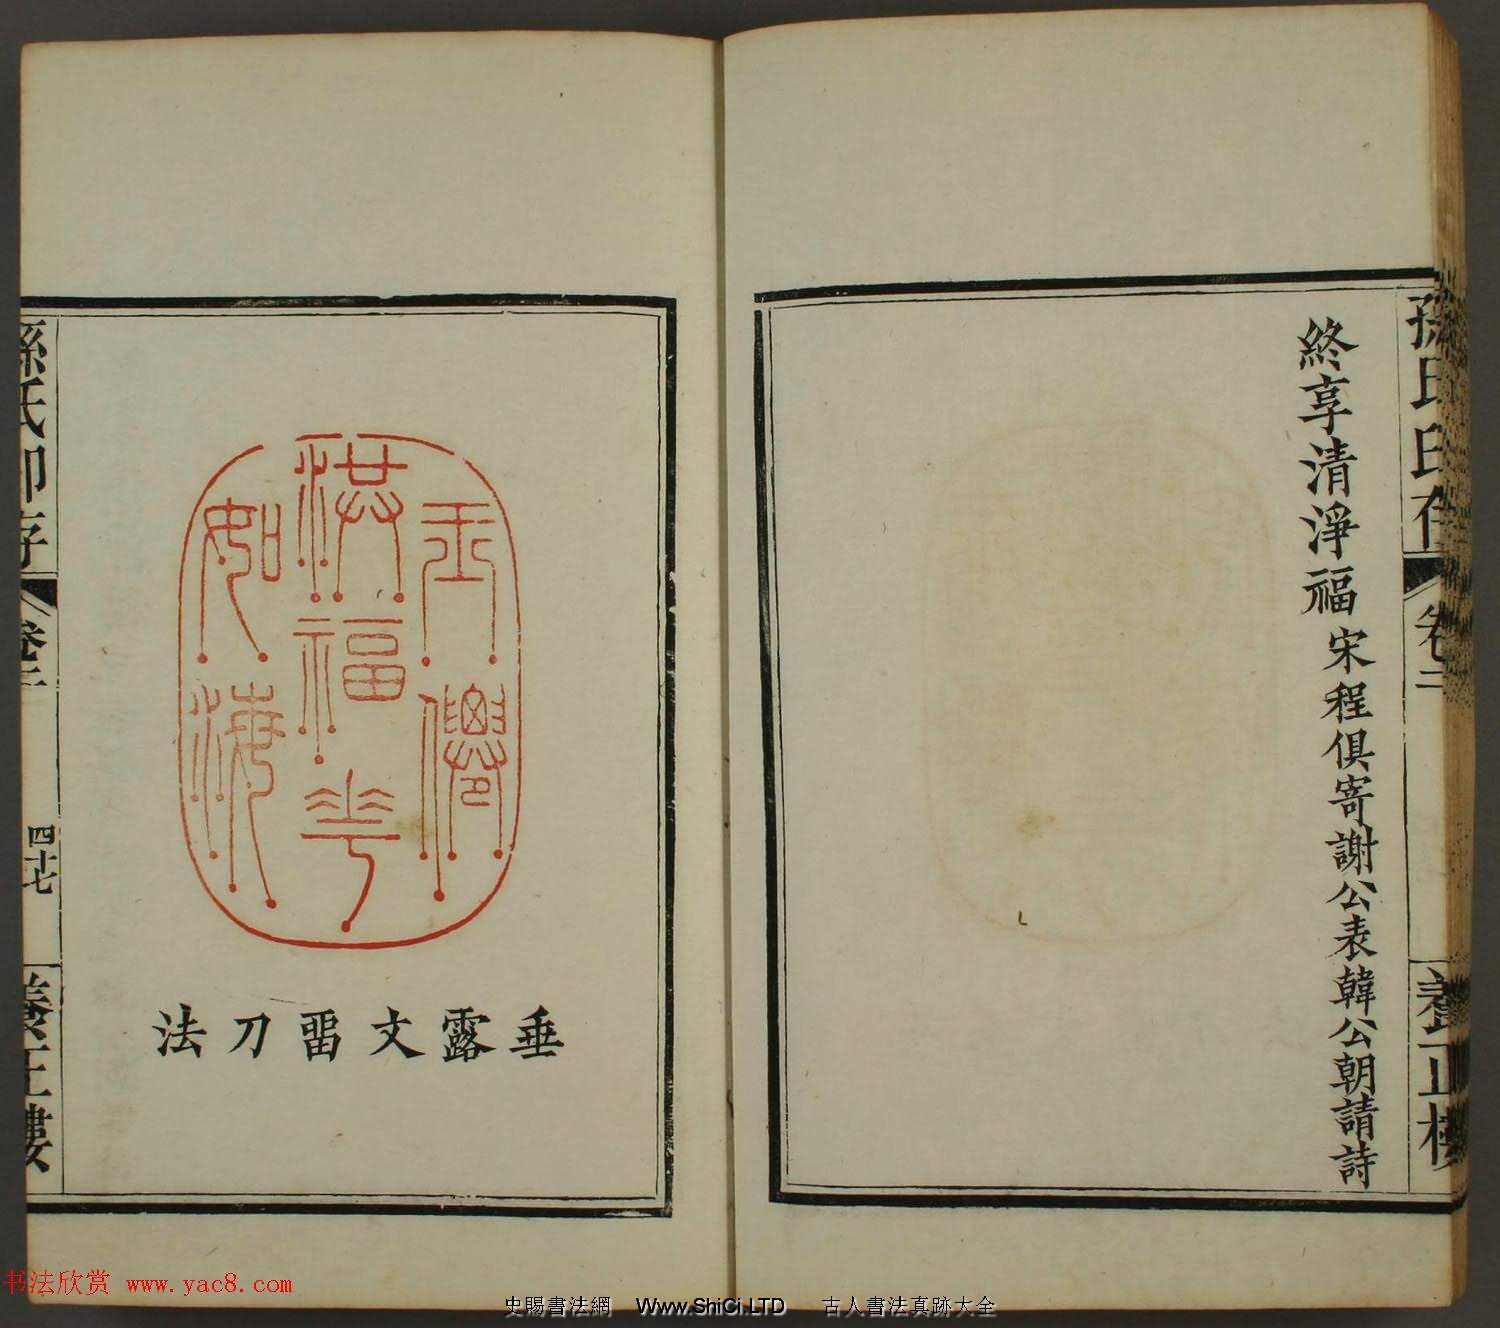 孫氏印存
卷二
養正樓
終享清淨福 宋程俱寄謝公表韓公朝請詩
僊
洪福
如海
垂露文畱刀法
孫氏印存
卷二
四十七
養正樓
书法欣赏 www.yac8.com
史賜書法網 Www.ShiCi.LTD 古人書法真跡大全